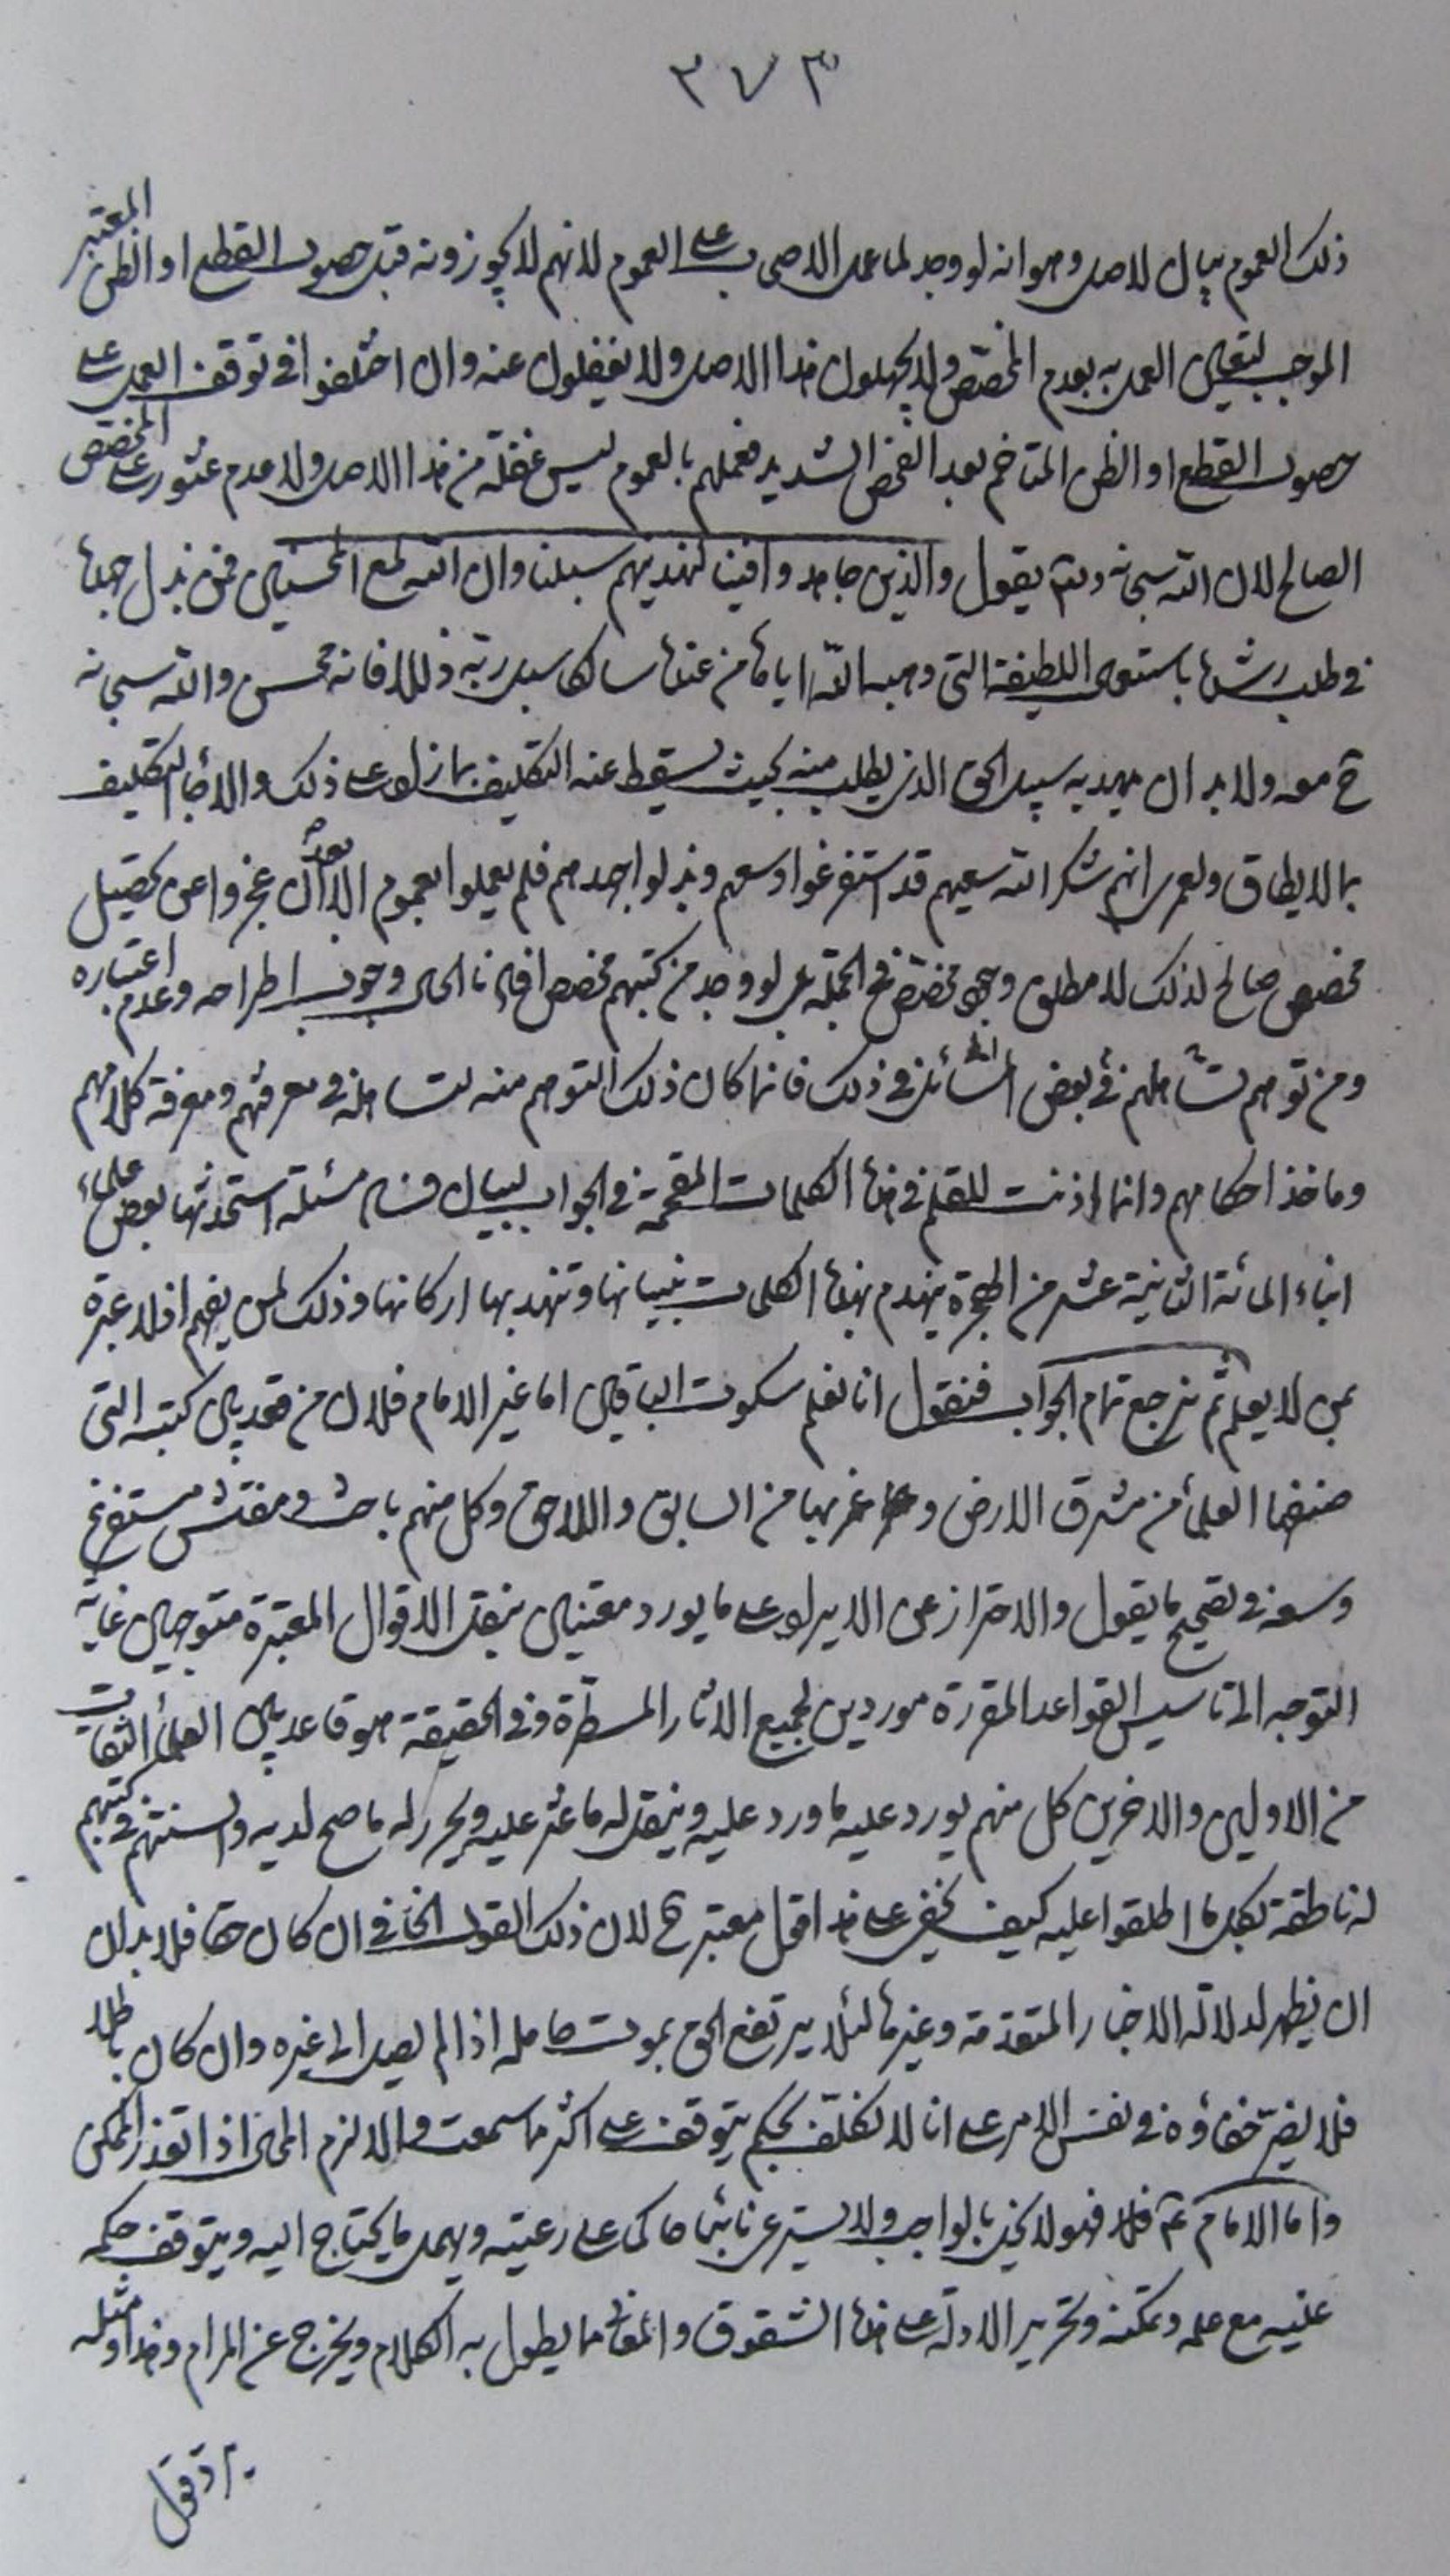 ٣٧٣
ذلك العموم بيان للاصل وهو انه لو وجد لما عمل الاصحاب على العموم لانهم لا يجوزونه قبل حصول القطع او الظن المعتبر
الموجب لتعين العمل به بعدم المخصص ولا يجهلون هذا الاصل ولا يغفلون عنه وان اختلفوا في توقف العمل على
حصول القطع او الظن المتاخم بعد الفحص الشديد فعملهم بالعموم ليس غفلة من هذا الاصل ولا عدم عثور على المخصص
الصالح لان الله سبحانه وتعالى يقول والذين جاهدوا فينا لنهدينهم سبلنا وان الله لمع المحسنين فمن بذل جهده
في طلب رشده باستعمال اللطيفة التي وهبه الله اياها من عنده سالكا سبل ربه ذللا فانه محسن والله سبحانه
ح معه ولا بد ان يهديه سبيل الحق الذي يطلب منه بحيث يسقط عنه التكليف بما زاد على ذلك والا لجاء التكليف
بما لا يطاق ولعمري انهم شكر الله سعيهم قد استفرغوا وسعهم وبذلوا جهدهم فلم يعملوا بعموم الا بعد ان عجزوا عن تحصيل
مخصص صالح لذلك لا مطلق وجود مخصص في الجملة بل لو وجد من كتبهم مخصص افادنا الحال وجوب اطراحه وعدم اعتباره
ومن توهم تساهلهم في بعض المسائل في ذلك فانما كان ذلك التوهم منه لتساهله في معرفتهم ومعرفة كلامهم
وماخذ احكامهم وانما اذنت للقلم في هذه الكلمات المقحمة في الجواب لبيان فساد مسئلة استحدثها بعض علماء
ابناء المائة الثانية عشر من الهجرة ينهدم بهذه الكلمات بنيانها وتنهد بها اركانها وذلك لمن يفهم اذ لا عبرة
بمن لا يعلم ثم نرجع تمام الجواب فنقول انا نعلم سكوت الباقين اما غير الامام فلان من قعد بين كتبه التي
صنفها العلماء من مشرق الارض ومغربها من السابق واللاحق وكل منهم باحث ومفتش مستفرغ
وسعه في تصحيح ما يقول والاحتراز عن الايراد على ما يورد معتنين بنقل الاقوال المعتبرة متوجهين غاية
التوجه الى تاسيس القواعد المقررة موردين لجميع الاثار المسطرة وفي الحقيقة هو قاعد بين العلماء الثقات
من الاولين والاخرين كل منهم يورد عليه ما ورد عليه وينقل له ما عثر عليه ويحرر له ما صح لديه والسنتهم في كتبهم
له ناطقة بكل ما اطلقوا عليه كيف يخفى على هذا قول معتبر ح لان ذلك القول الخافي ان كان حقا فلا بد ان
ان يظهر لدلالة الاخبار المتقدمة وغيرها لئلا يرتفع الحق بموت حامله اذا لم يصل الى غيره وان كان باطلا
فلا يضر خفاؤه في نفس الامر على انا لا نكلف بحكم يتوقف على اكثر ما سمعت والا لزم المحال اذا تعذر الممكن
واما الامام ع فلا فهو لا يخل بالواجب ولا يستر عنا شيئا حاكي على رعيته ويهمل ما يحتاج اليه ويتوقف حكمه
عليه مع علمه وتمكنه وتحرير الادلة على هذه الشقوق والمعاني مما يطول به الكلام ويخرج عن المرام وهذا ومثله